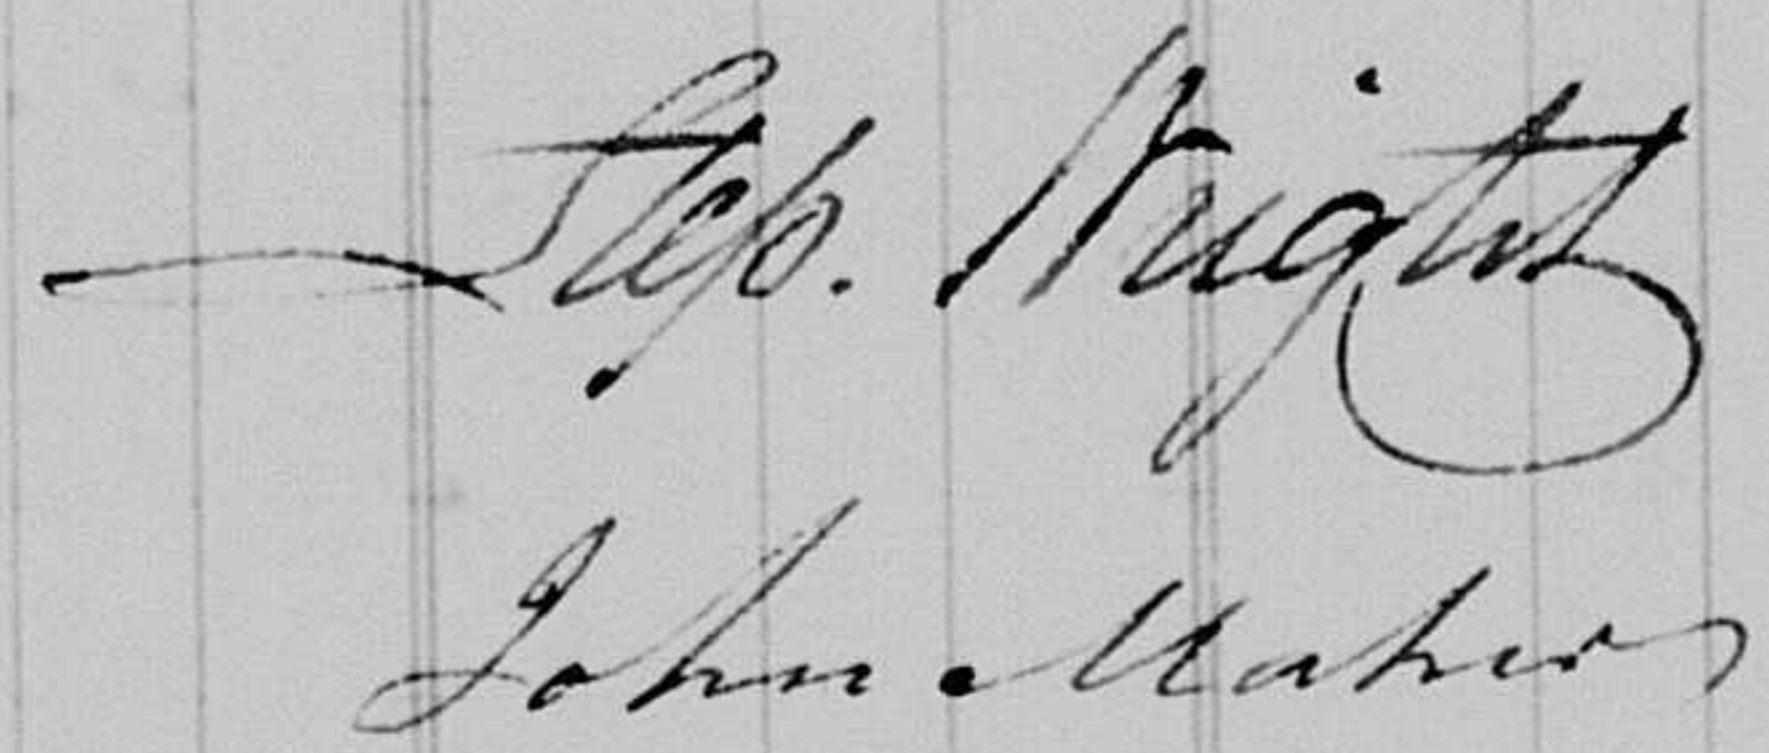 Step. Wright
John Maher